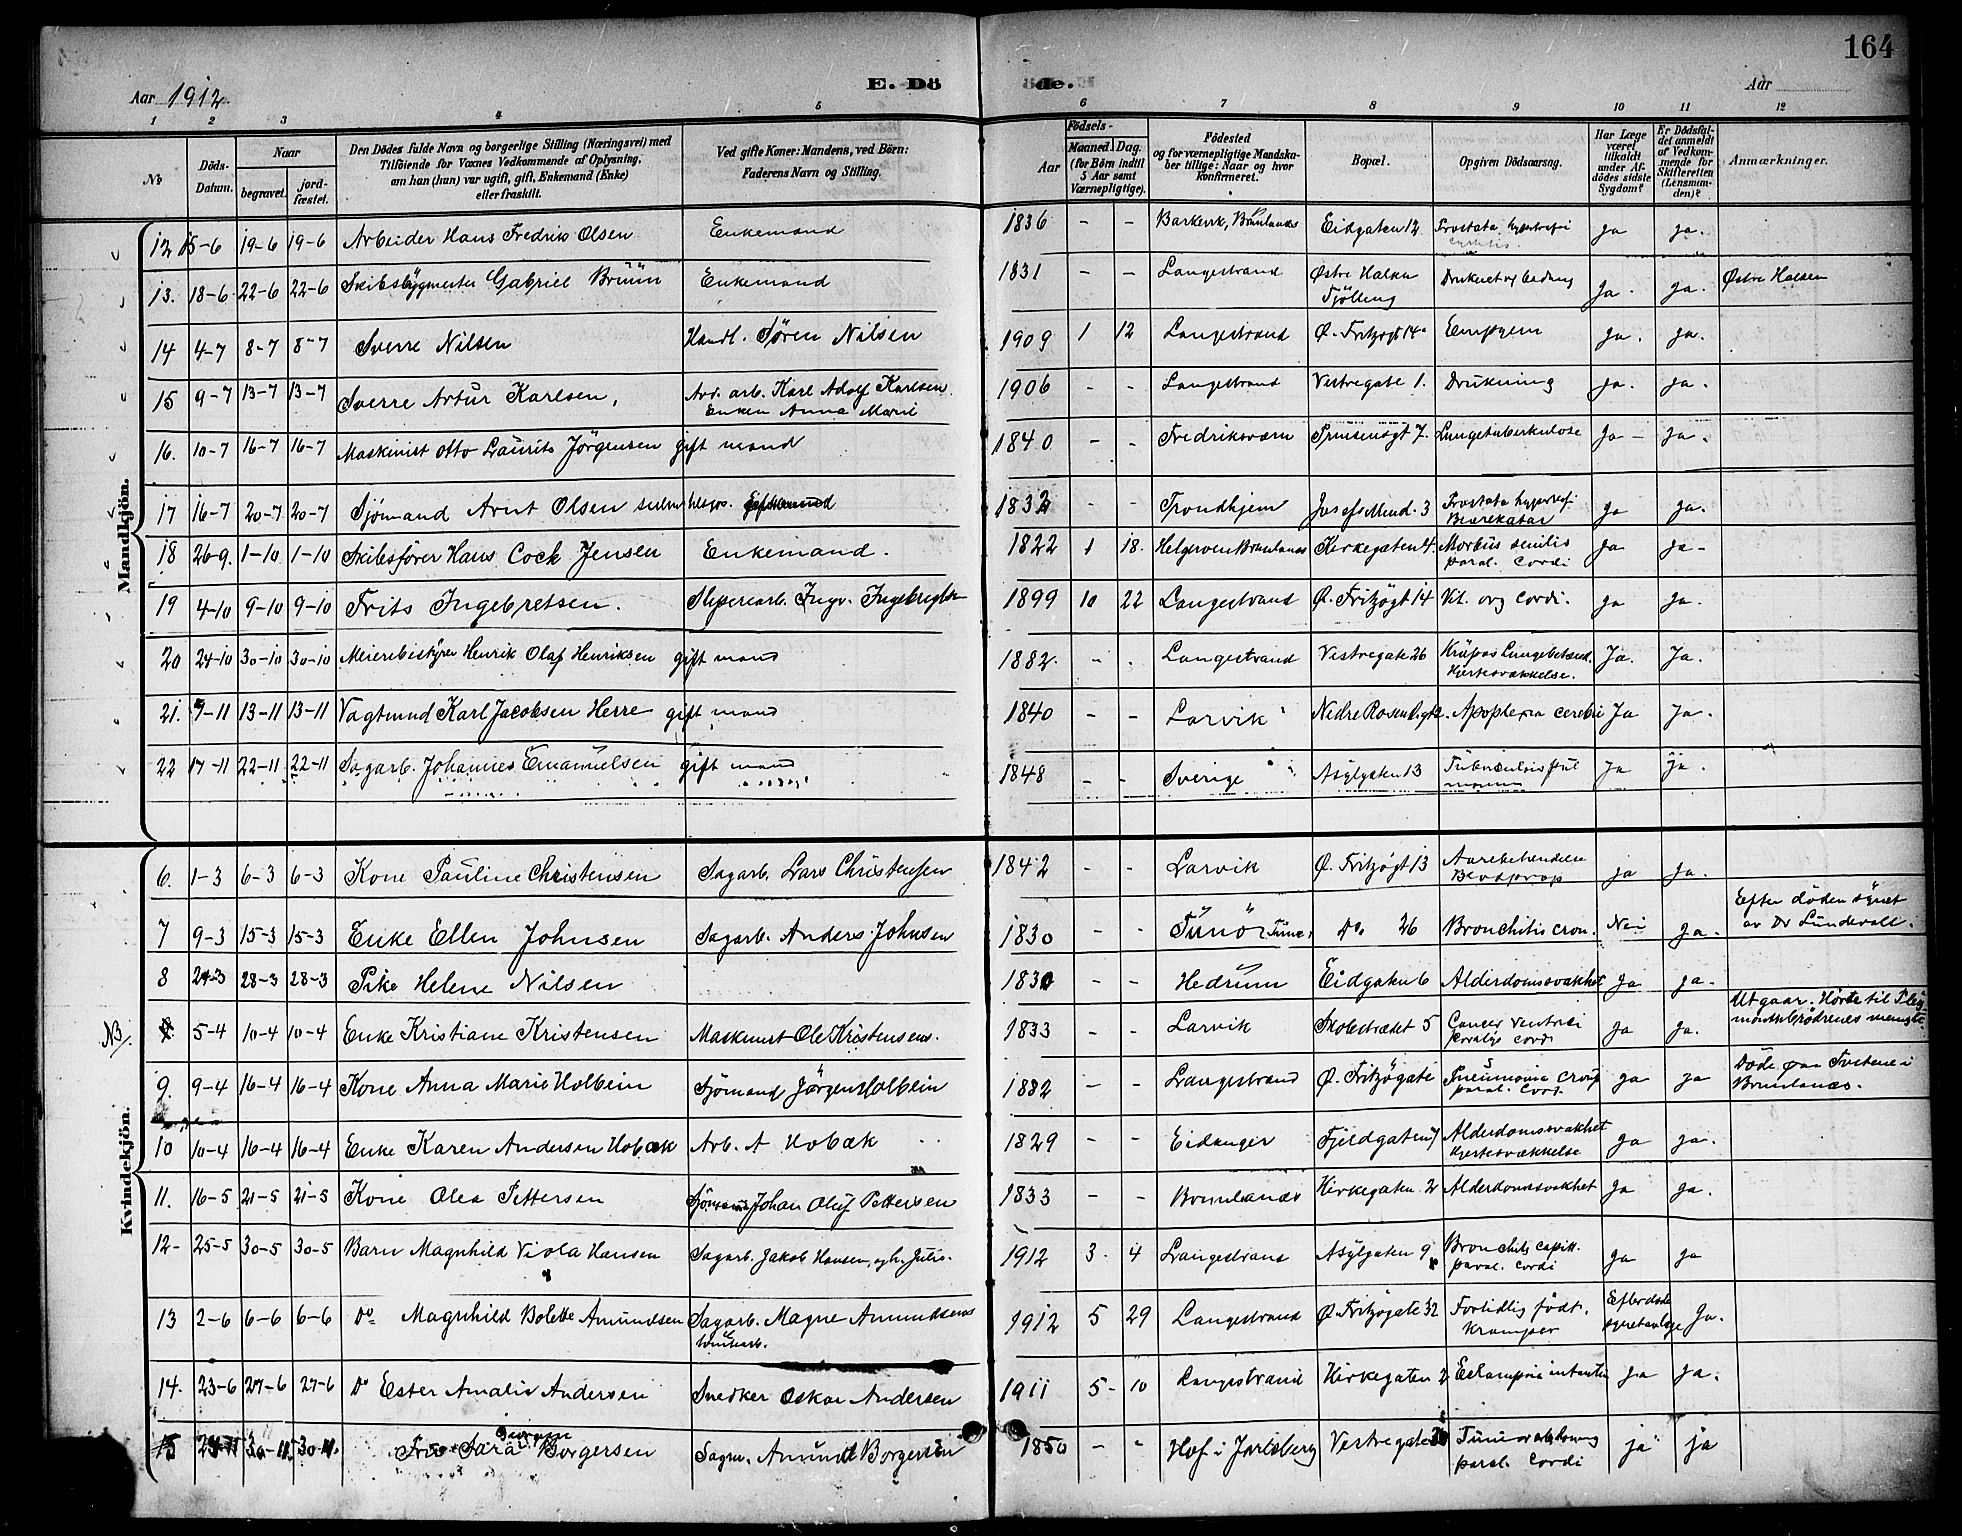 164
Aar 1912.
E. Dö de.
Aar
1 2 3 4 5 6 7 8 9 10 11 12
No
Döds-Datum.
Naar
begravet.
jord-fæstet.
Den Dödes fulde Navn og borgerlige Stilling (Næringsvei) med
Tilföiende for Voxnes Vedkommende af Oplysning,
om han (hun) var ugift, gift, Enkemand (Enke)
eller fraskilt.
Ved gifte Koner: Mandens, ved Börn:
Faderens Navn og Stilling.
Födsels-
Aar
Maaned. Dag.
(for Börn indtil
5 Aar samt
Værnepligtige).
Födested
og for værnepligtige Mandska-
ber tillige: Naar og hvor
konfirmeret.
Bopæl.
Opgiven Dödsaarsag.
Har Læge
været
tilkaldt
under Af-
dödes sidste
Sygdom?
Er Dödsfal-
det anmeldt
af Vedkom-
mende for
Skifteretten
(Lensman-
den)?
Anmærkninger.
Mandkjön.
12 15-6 19-6 19-6 Arbeider Hans Fredrik Olsen Enkemand 1836 - - Barkevik, Brunlanæs Eidgaten 12 Prostata hypertrofi ja ja.
13. 18-6 22-6 22-6 Skibsbygmester Gabriel Bruun Enkemand 1831 - - Langestrand Østre Halsen Tjölling ja. ja. Østre Halsen
14 4-7 8-7 8-7 Sverre Nilsen Handl. Sören Nilsen 1909 1 12 Langestrand Ø. Fritzøgt 14 Empyem ja. ja.
15 9-7 13-7 13-7 Sverre Artur Karlsen, arb. Karl Adolf Karlsen
Enken Anna Marie 1906 - - Langestrand Vestregate 1. Drukning ja. ja.
16. 10-7 16-7 16-7 Maskinist Otto Laurits Jörgensen gift mand 1840 - - Fredriksværn Prinsensgt 7. Lungetuberkulose Ja - Ja.
17 16-7 20-7 20-7 Sjömand Arnt Olsen 1832 - - Trondhjem Josefs Mind. 3 Prostata hypertrofi
Blærekatar ja ja.
18 26-9. 1-10 1-10 Skibsförer Hans Cock Jensen Enkemand. 1822 1 18. Helgeroen Brunlanæs Kirkegaten 4. Morbus senilis
paral. Cordi ja ja-
19 4-10 9-10 9-10 Frits Ingebretsen. Sliperiarb. Ingv. Ingebregtsen 1899 10 22 Langestrand Ø. Fritzøgt 14 Vit. org Cordi. ja ja.
20 24-10 30-10 30-10 Meieribestyrer Henrik Olaf Henriksen gift mand 1882. - - Langestrand Vestregate 26 Krupøs Lungebetænd.
Hjertesvækkelse. Ja. Ja.
21. 9-11 13-11 13-11 Vagtmand Karl Jacobsen Herre gift mand 1840 - - Larvik Nedre Rosenb.gt 2. Apoplexia cerebri Ja Ja.
22 17-11 22-11 22-11 Sagarb. Johannes Emanuelsen gift mand 1848 - - Sverige Asylgaten 13 Tuberculosis pul
monum Ja ja.
Kvindekjön.
6. 1-3 6-3 6-3 Kone Pauline Christensen Sagarb. Lars Christensen 1842 - - Larvik Ø. Fritzøgt 13 Aarebetændelse
Blodprop ja ja.
7 9-3 15-3 15-3 Enke Ellen Johnsen Sagarb. Anders Johnsen 1830 - - Tunö Do 26 Bronchitis cron. Nei ja. Efter döden synet
av Dr Lundevall.
8 24-3 28-3 28-3 Pike Helene Nilsen 1830 - - Hedrum Eidgaten 6 Alderdomssvakhet ja ja.
NB. 5-4 10-4 10-4 Enke Kristiane Kristensen Maskinist Ole Kristensens. 1833 - - Larvik Skolestrædet 5 Cancer ventriculi
paralys cordi ja ja. Utgaar. Hörte til
brödrenes menighet
9. 9-4 16-4 16-4 Kone Anna Marie Holbein Sjömand Jörgen Holbein 1882 - - Langestrand Ø. Fritzøgate Pneumonia croup
paral. Cord. ja ja Döde paa Tvetene i
Brunlanæs.
10 10-4 16-4 16-4 Enke Karen Andersen Hobæk Arb. A Hobæk 1829 - - Eidanger Fjeldgaten 7 Alderdomssvakhet
Hjertesvækkelse ja ja.
11. 16-5 21-5 21-5 Kone Olea Pettersen Sjömand Johan Oluf Pettersen 1833 - - Brunlanæs Kirkegaten 2 Alderdomssvakhet ja ja.
12- 25-5 30-5 30-5 Barn Magnhild Viola Hansen Sagarb. Jakob Hansen, og h. Julie. 1912 3. 4 Langestrand Asylgaten 9 Bronchitis Capill.
paral. Cordi ja ja
13 2-6 6-6 6-6 Do Magnhild Bolette Amundsen Sagarb. Magne Amundsens 1912 5 29 Langestrand Ø. Fritzøgate 32 Fortidlig födt,
Kramper Efter döde
synet av læge Ja.
14. 23-6 27-6 27-6 Do Ester Amalie Andersen Snedker Oskar Andersen 1911 5- 10 Langestrand Kirkegaten 2 Eclampsia infantum ja ja.
15 30-11. 30-11. Fru Sara Borgersen Sagm. Amund Borgersen 1850 - - Hof i Jarlsberg Vestregate Tumor abdomin
paral. Cordi ja ja